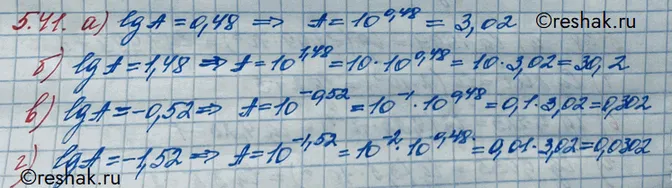 5.41. а) lg A = 0,48 ⟹ A = 10^0,48 = 3,02
б) lg A = 1,48 ⟹ A = 10^1,48 = 10·10^0,48 = 10·3,02 = 30,2
в) lg A = -0,52 ⟹ A = 10^-0,52 = 10^-1·10^0,48 = 0,1·3,02 = 0,302
г) lg A = -1,52 ⟹ A = 10^-1,52 = 10^-2·10^0,48 = 0,01·3,02 = 0,0302
©reshak.ru ©reshak.ru